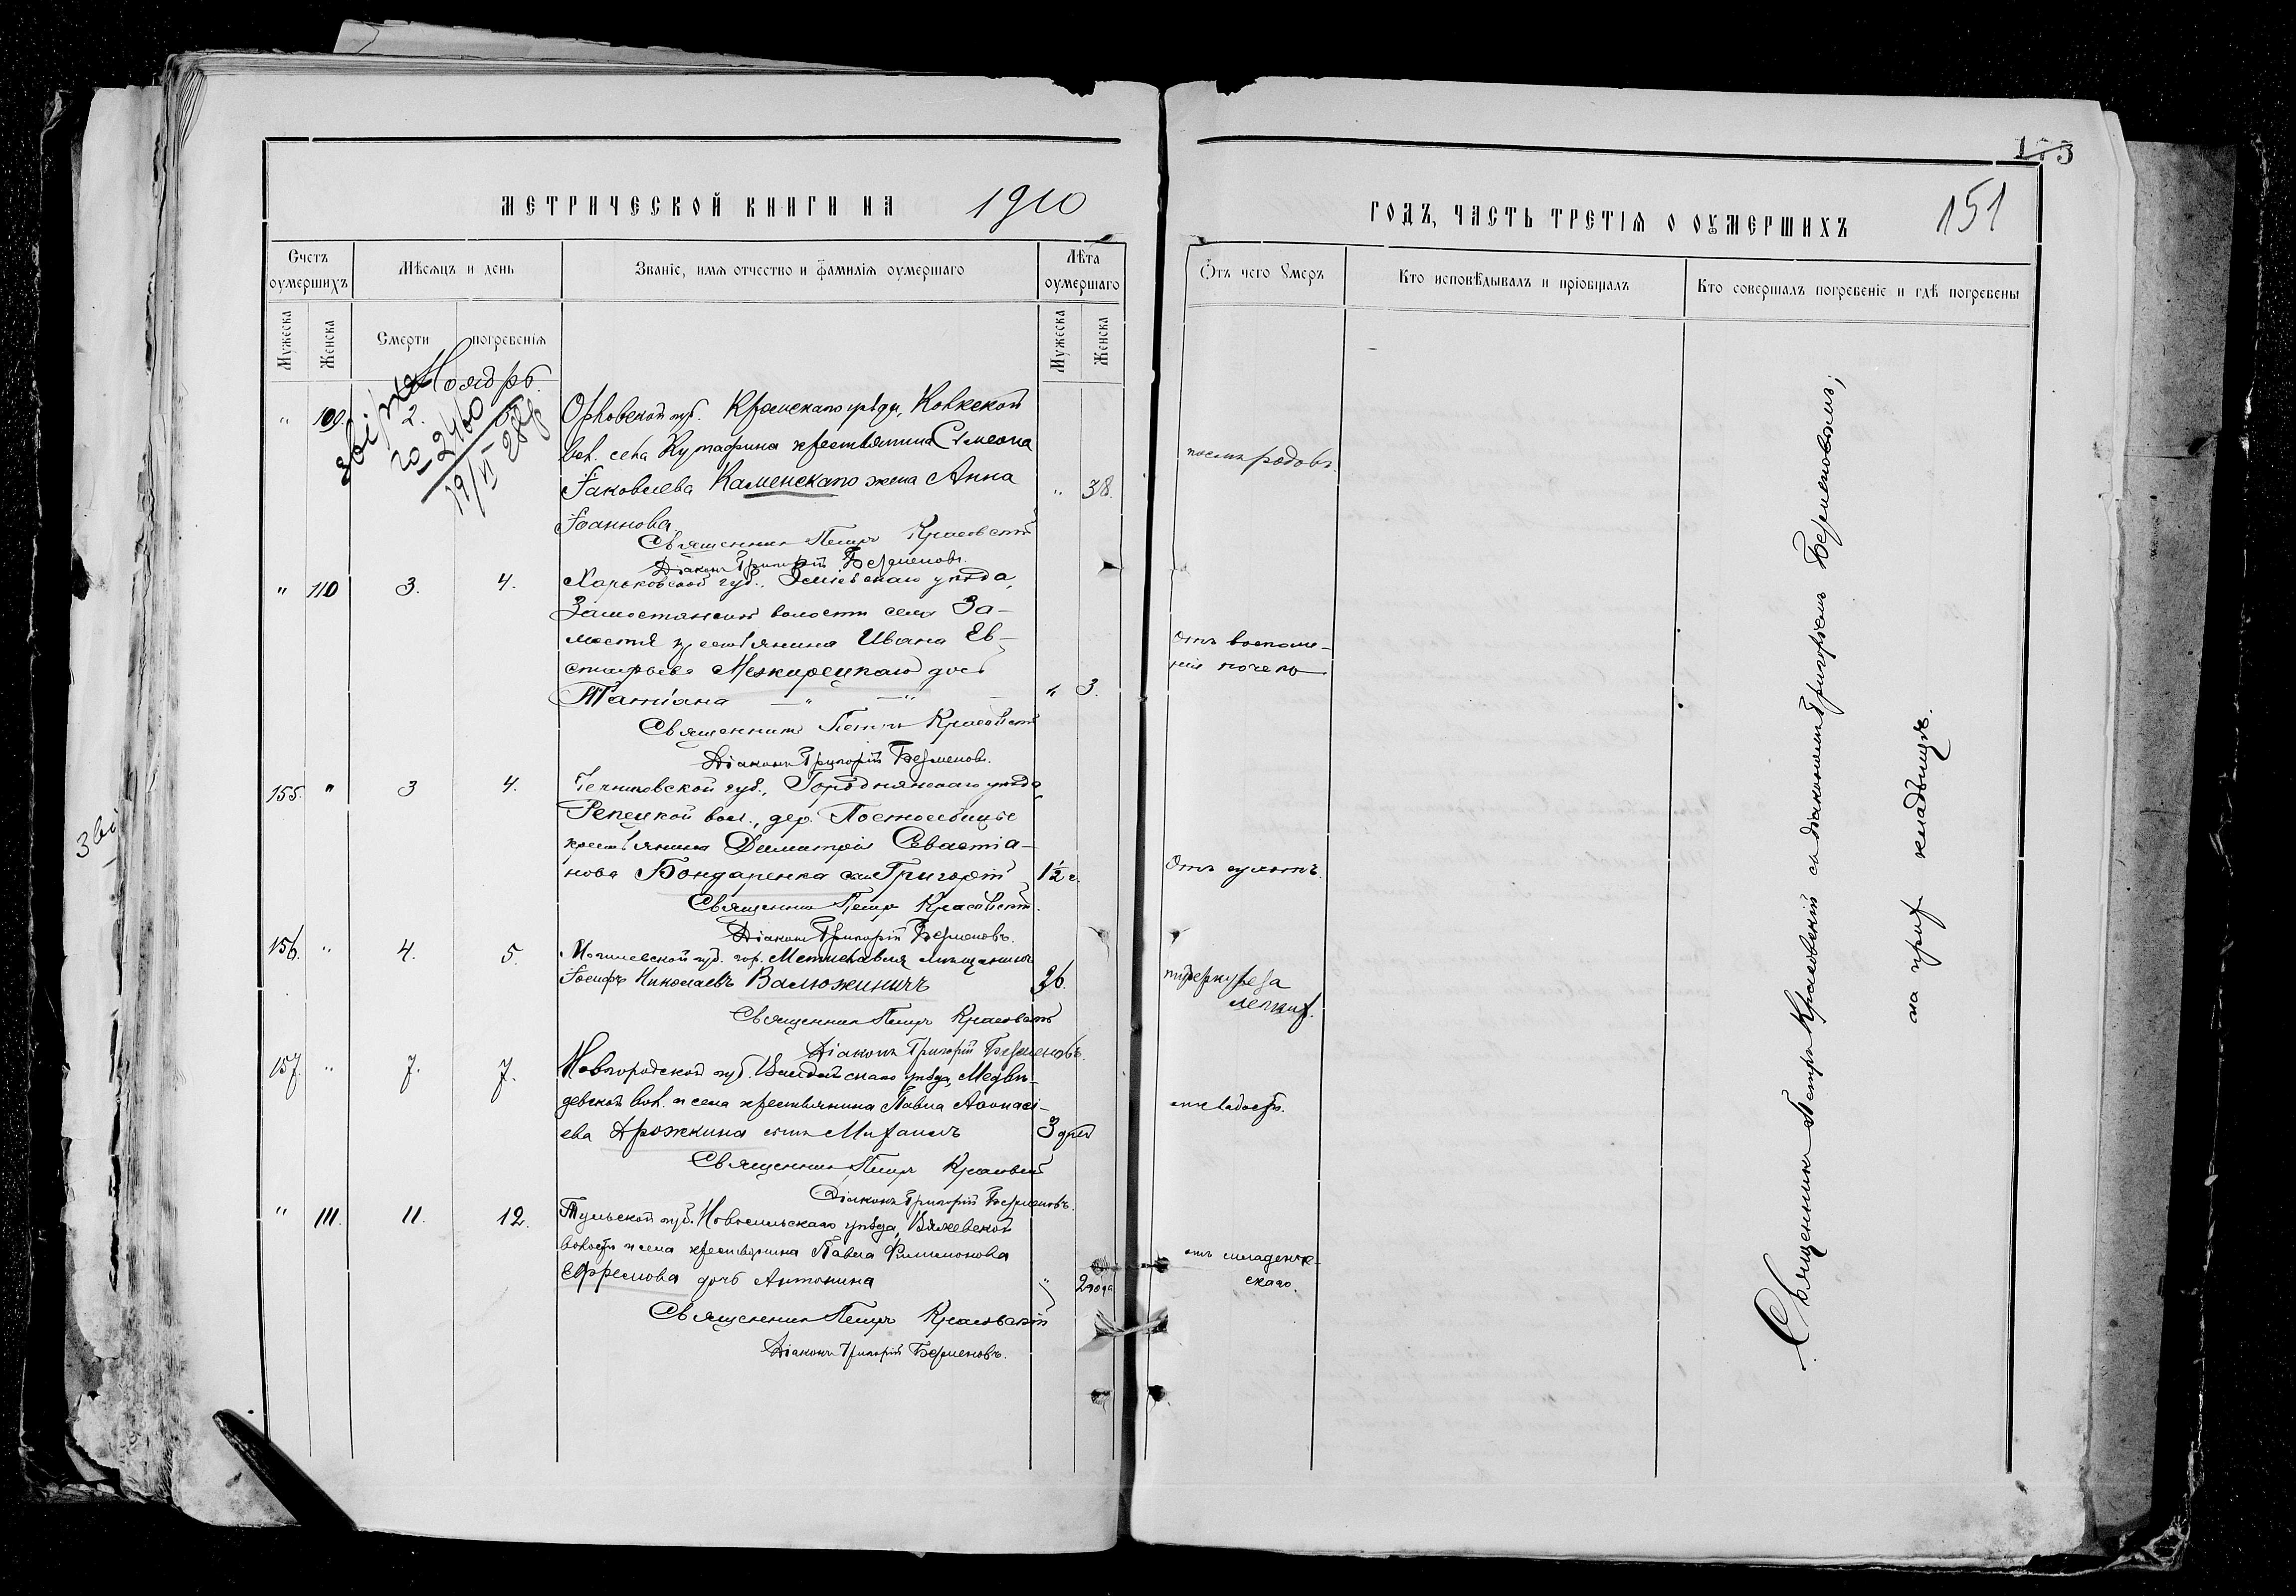 МЕТРИЧЕСКОЙ КНИГИ НА 1910
Счетъ оумершихъ
Мѣсяцъ и день
Званіе, имя отчество и фамилія оумершаго
Лѣта оумершаго
Мужеска
Женска
Смерти
погребенія
Мужеска
Женска
Ноябрь.
" 109. 2.
2460
19/VI 28 г
Орловской губ. Кромскаго уѣзда,
вол. села Кутафина крестьянина Симеона
Іаковлева Каменскаго жена Анна " 38.
Іоаннова
Священникъ Петръ Красовскій
Діаконъ Григорій Безменовъ.
" 110 3. 4. Харьковской губ., Зміевскаго уѣзда,
Замостянской волости села За-
мостья крестьянина Ивана Ев-
стафьева Межирецкаго дочь
Татіана — " — " — " 3.
Священникъ Петръ Красовскій
Діаконъ Григорій Безменовъ.
155. " 3 4. Черниговской губ., Городнянскаго уѣзда,
Репецкой вол., дер.
крестьянина Димитрія Севастіа-
нова Бондаренка сынъ Григорій 1½ г.
Священникъ Петръ Красовскій.
Діаконъ Григорій Безменовъ.
156. " 4. 5. Могилевской губ. гор. Мстиславля мѣщанинъ
Іосифъ Николаевъ Валюжиничъ 36.
Священникъ Петръ Красовскій
Діаконъ Григорій Безменовъ.
157. " 7. 7. Новгородской губ. Валдайскаго уѣзда, Медвѣ-
девской вол. и села крестьянина Павла Аѳонасі-
ева Дрожкина сынъ Михаилъ 3 дня
Священникъ Петръ Красовскій
Діаконъ Григорій Безменовъ.
" 111. 11. 12. Тульской губ. Новосильскаго уѣзда, Вяжевской
волости и села крестьянина Павла Филимонова
Ефремова дочь Антонина " 2 года
Священникъ Петръ Красовскій
Діаконъ Григорій Безменовъ.
173
ГОДЪ, ЧАСТЬ ТРЕТІЯ О ОУМЕРШИХЪ 151
Отъ чего Умеръ
Кто исповѣдывалъ и пріобщалъ
Кто совершалъ погребеніе и гдѣ погребены
послѣ родовъ.
Отъ воспале-
нія почекъ
туберкулеза
легких.
от слабости.
отъ младенче-
скаго.
Священникъ Петръ Красовскій съ діакономъ Григоріемъ Безменовымъ,
на прих кладбищѣ.